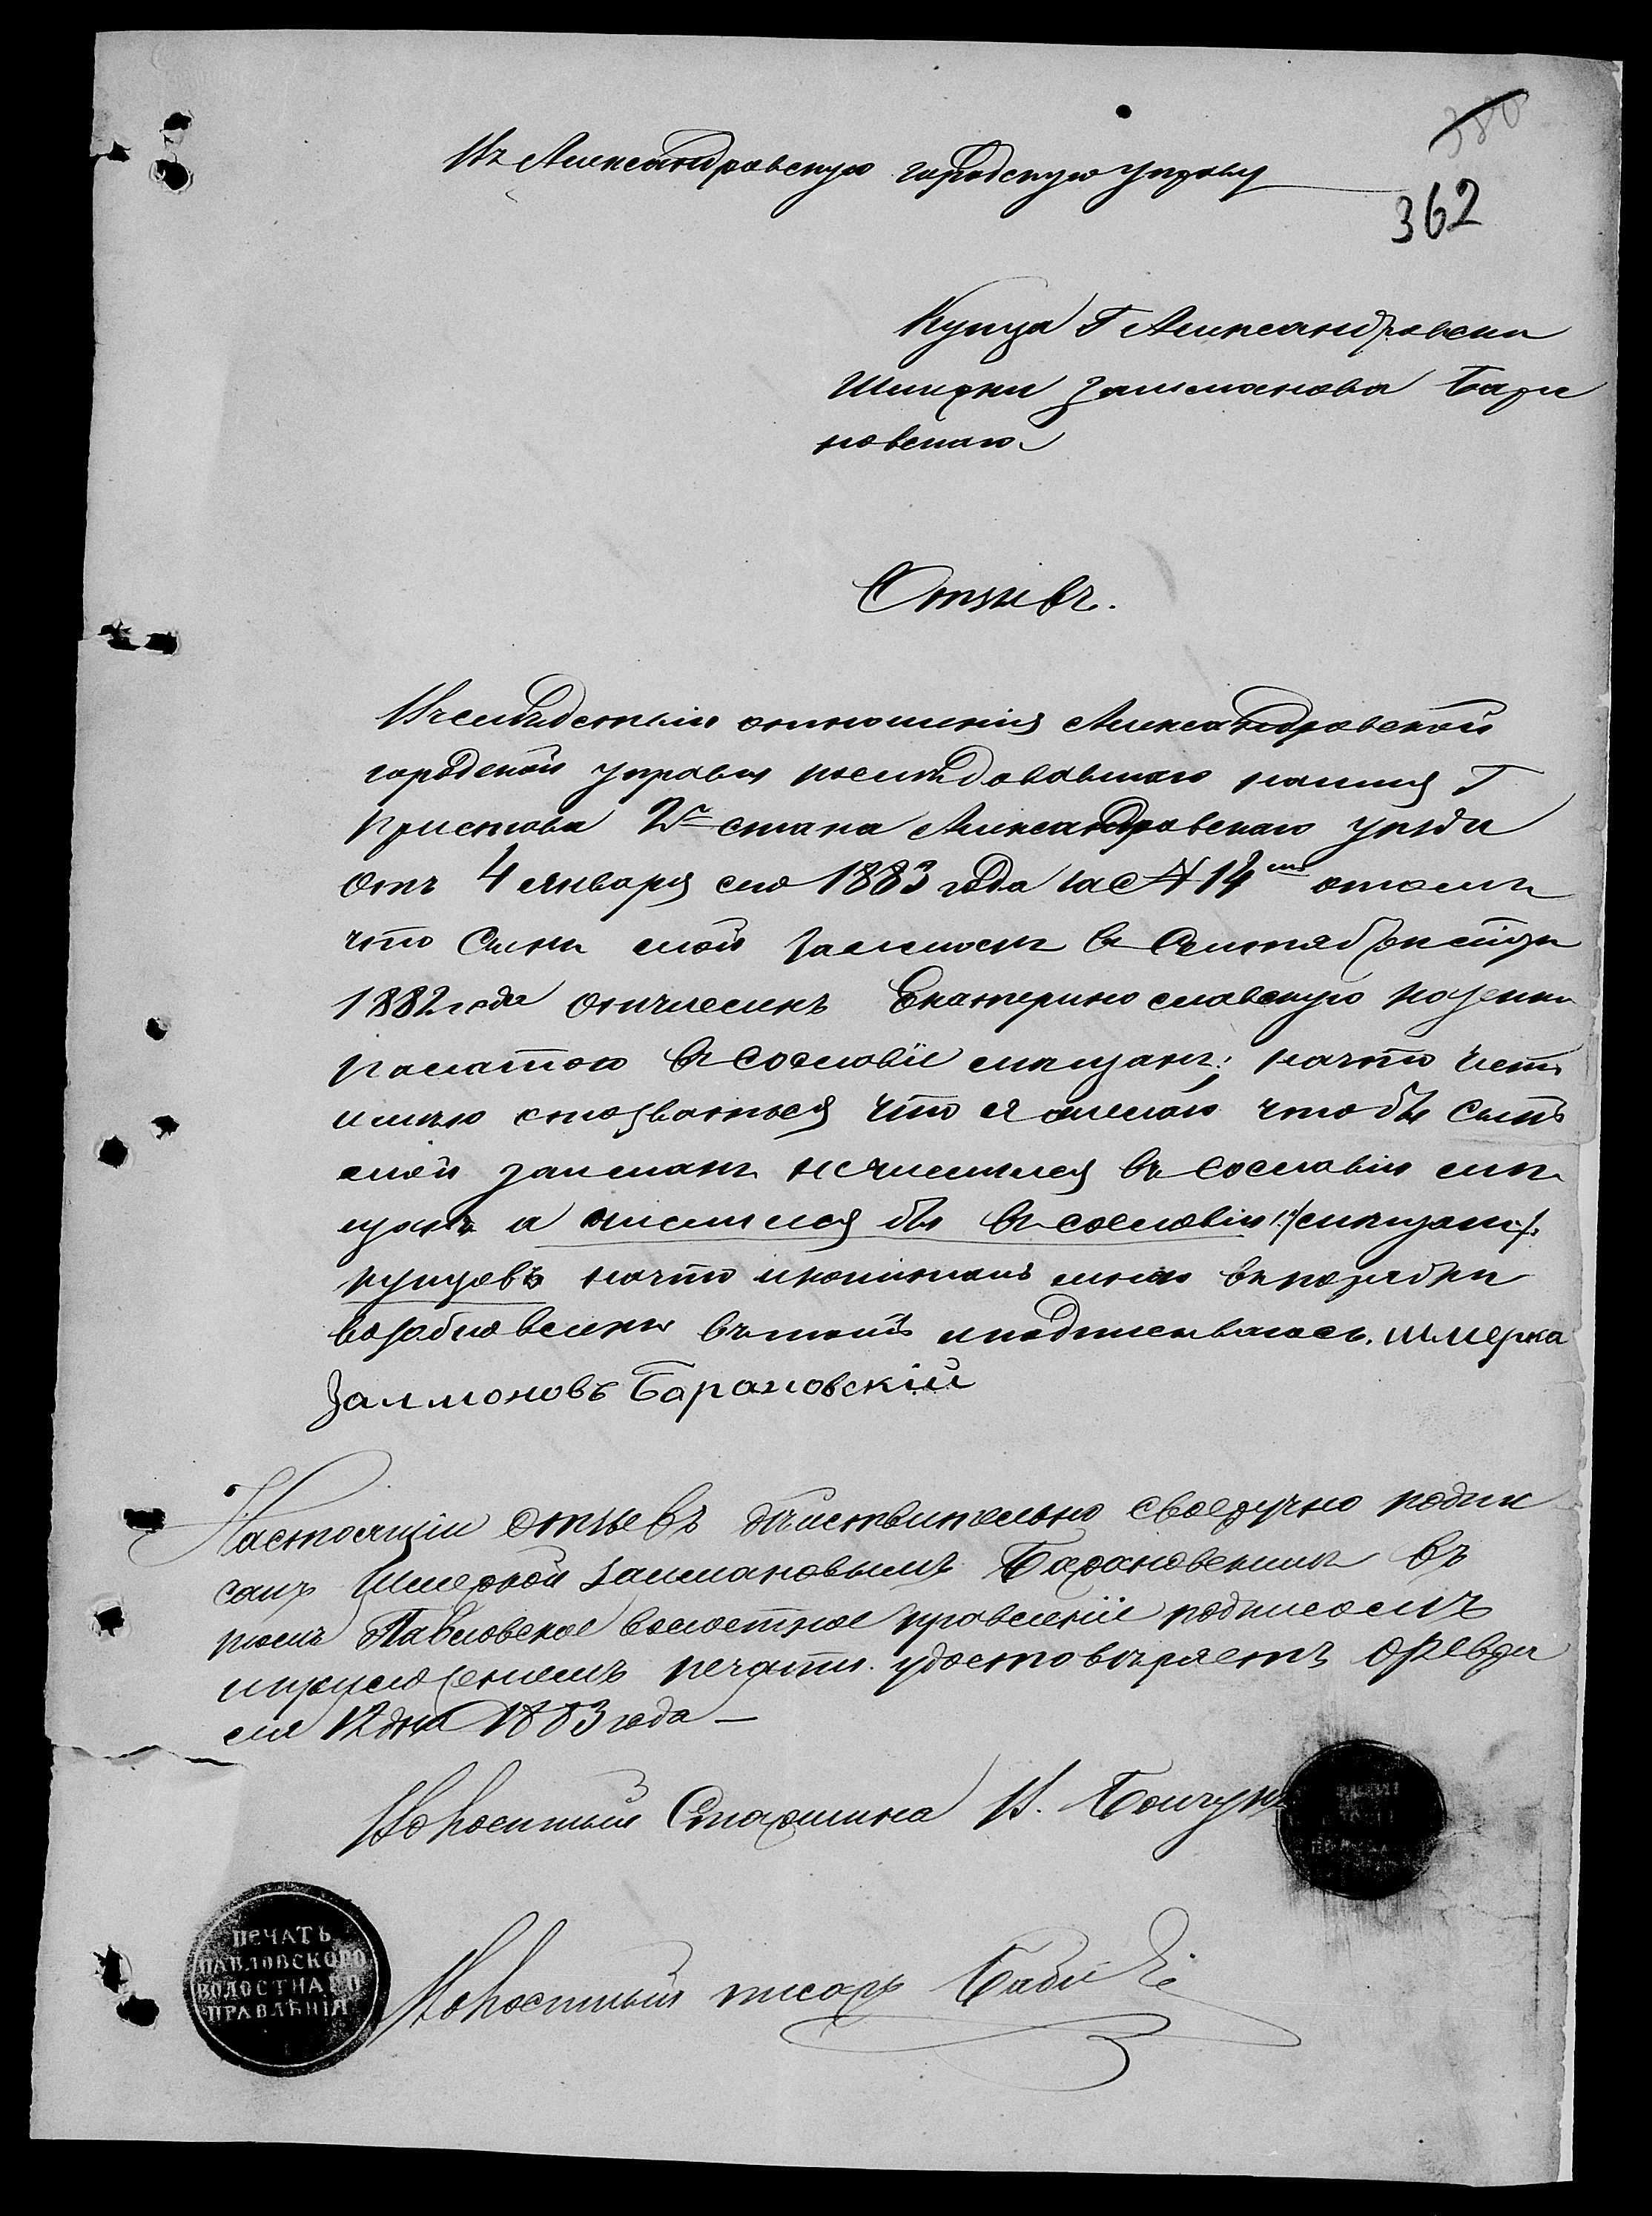 380
362
Въ Александровскую городскую управу
Купца Г Александровска
Шмерки Залманова Бара
новскаго
Отзывъ.
Въ следствіи отношенія Александровской
городской управы последовавшаго наимя Г
Пристава 2го стана Александровскаго уезда
отъ 4 января сего 1883 года за № 14 отомъ
что Сынъ мой Залманъ в Сентябре месяце
1882 года отчисленъ Екатеринославскую казенно
Палатою въ сословіе мещанъ; начто честь
имею отозваться что я желаю чтобы сынъ
мой залманъ нечислился въ сословіи ме
щанъ а числился бы въ сословіи /мещанъ/
купцовъ начто мною въ порядке
въ томъ и подписываюсь. шмерка
Залмоновъ Барановскій
Настоящій отзывъ действительно своеручно подпи
санъ Шмеркой Залмановымъ Барановскимъ въ
томъ Павловское волостное правленіе подписомъ
и приложеніемъ печати удостоверяетъ Февра
ля 12 дня 1883 года —
Волостный Старшина
Волостный писарь Бабичъ
ПЕЧАТЬ
ПАВЛОВСКОГО
ВОЛОСТНАГО
ПРАВЛѢНІЯ